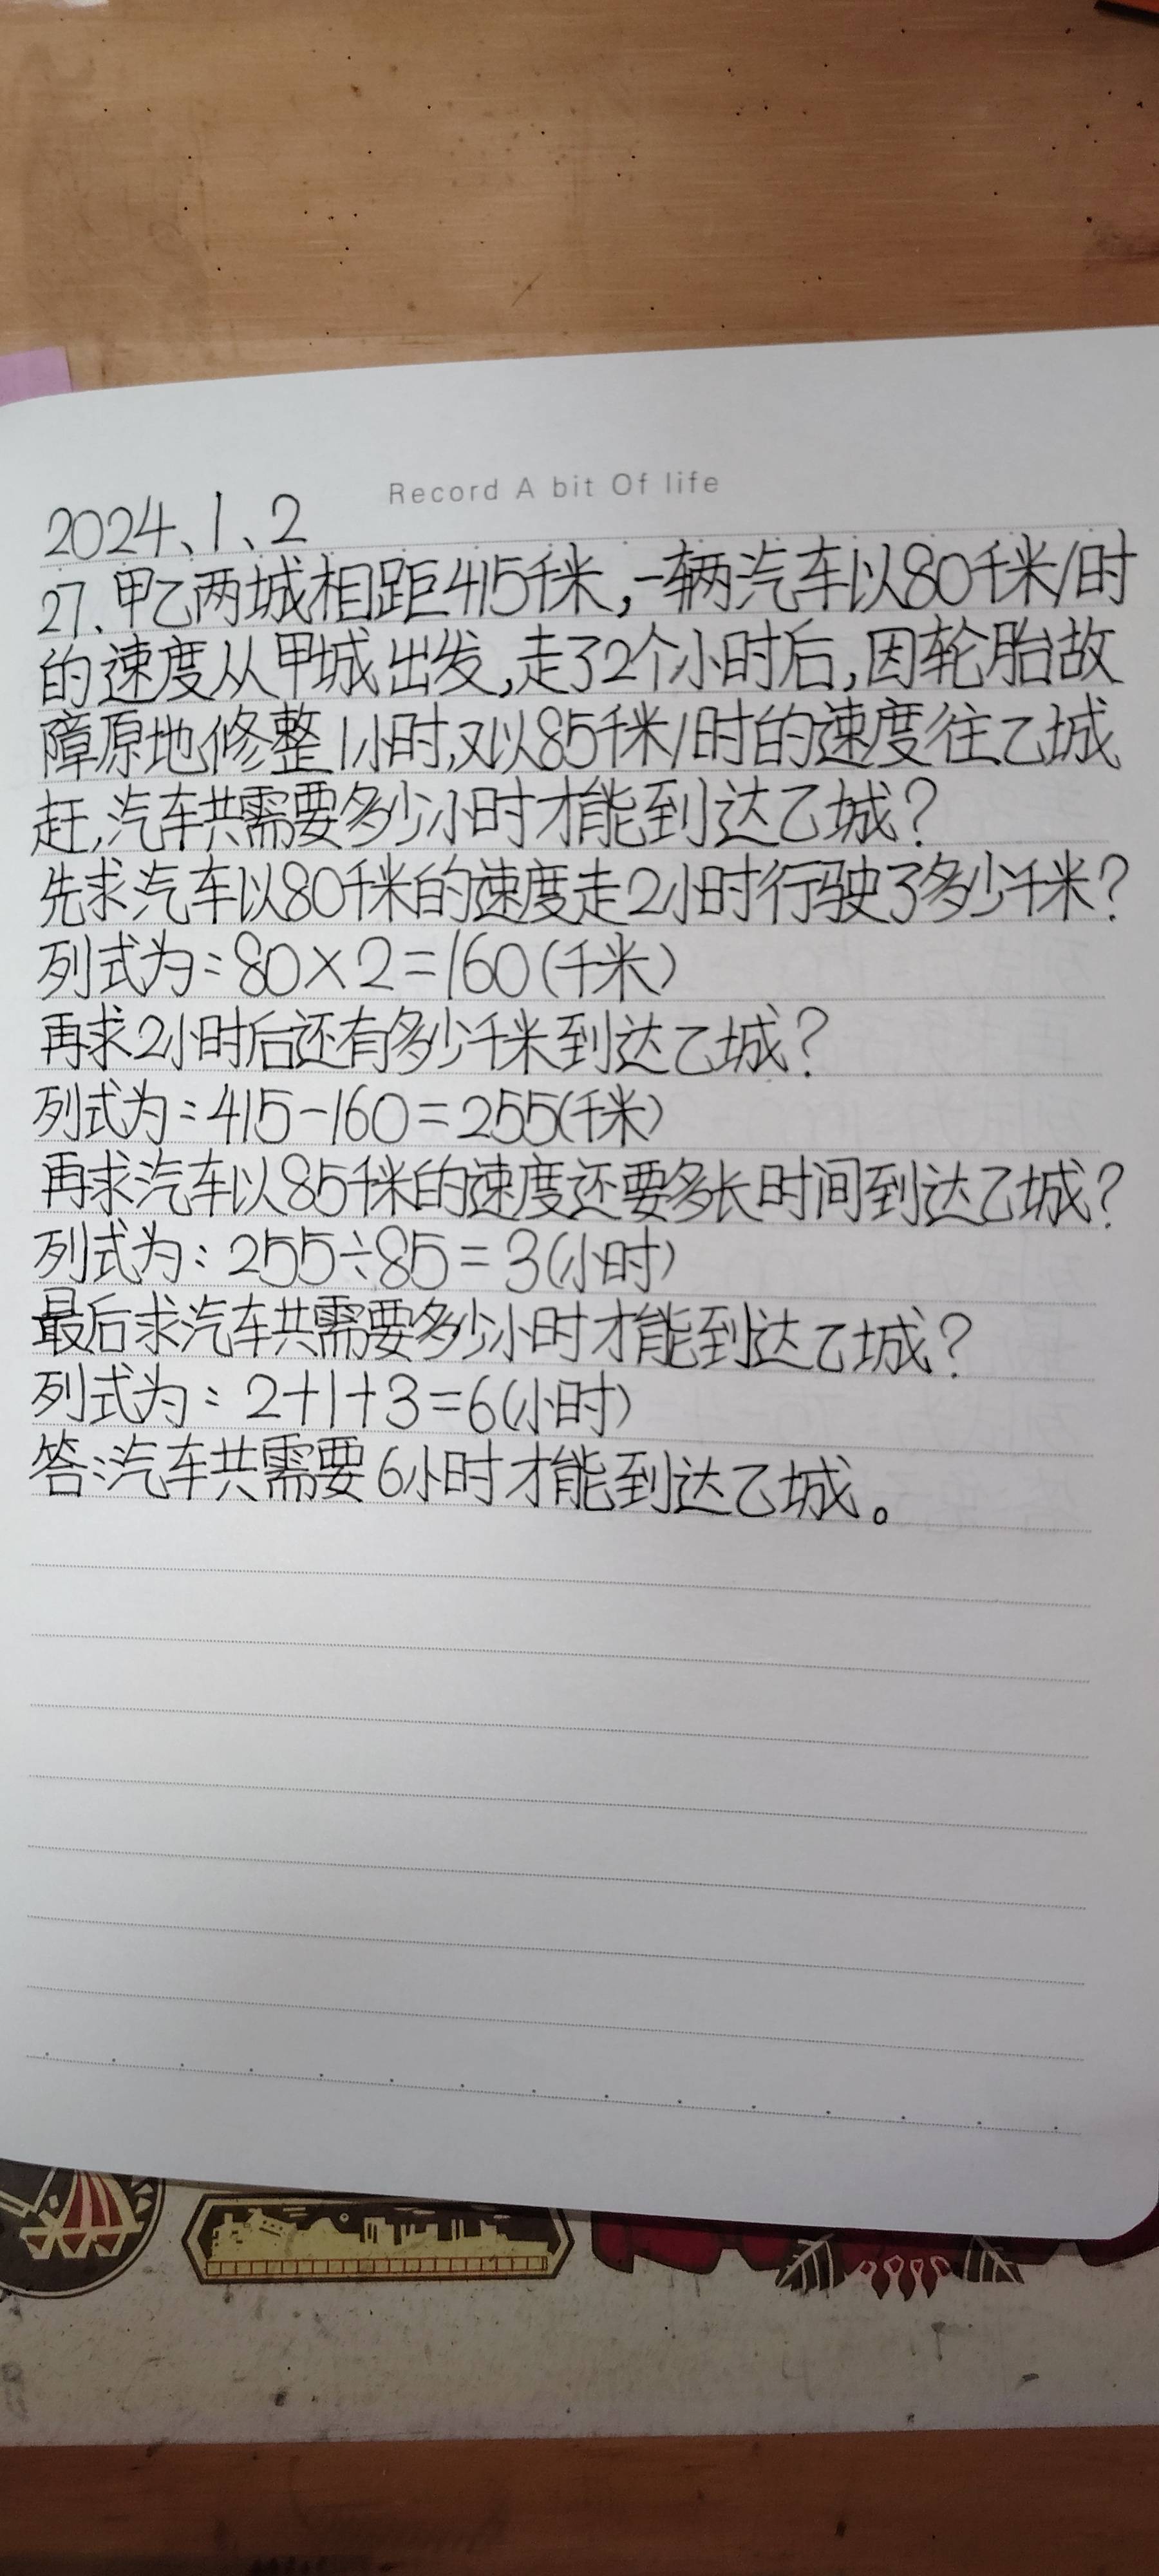 Record A bit Of life
2024、1、2
27、甲乙两城相距415千米,一辆汽车以80千米/时
的速度从甲城出发,走了2个小时后,因轮胎故
障原地修整1小时,又以85千米/时的速度往乙城
赶,汽车共需要多少小时才能到达乙城?
先求汽车以80千米的速度走2小时行驶了多少千米?
列式为:80×2=160(千米)
再求2小时后还有多少千米到达乙城?
列式为:415-160=255(千米)
再求汽车以85千米的速度还要多长时间到达乙城?
列式为:255÷85=3(小时)
最后求汽车共需要多少小时才能到达乙城?
列式为:2+1+3=6(小时)
答:汽车共需要6小时才能到达乙城。